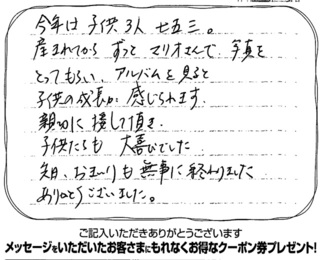 今年は子供3人 七五三。
産まれてから ずっと マリオさんで、写真を
とってもらい、アルバムを見ると
子供の成長が 感じられます。
親切に 接して頂き、
子供たちも 大喜びでした
先日、お まいりも 無事に 終わりました
ありがとうございました。
ご記入いただきありがとうございます
メッセージをいただいたお客さまにもれなくお得なクーポン券プレゼント!